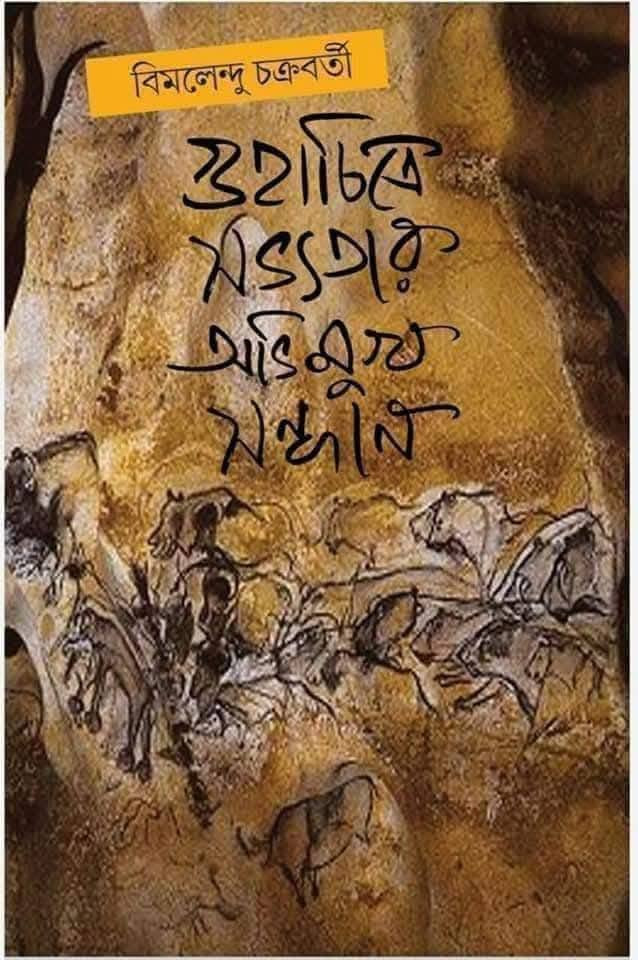 বিমলেন্দু চক্রবর্তী
গুহাচিত্রে
সভ্যতার
অভিমুখ
সন্ধান